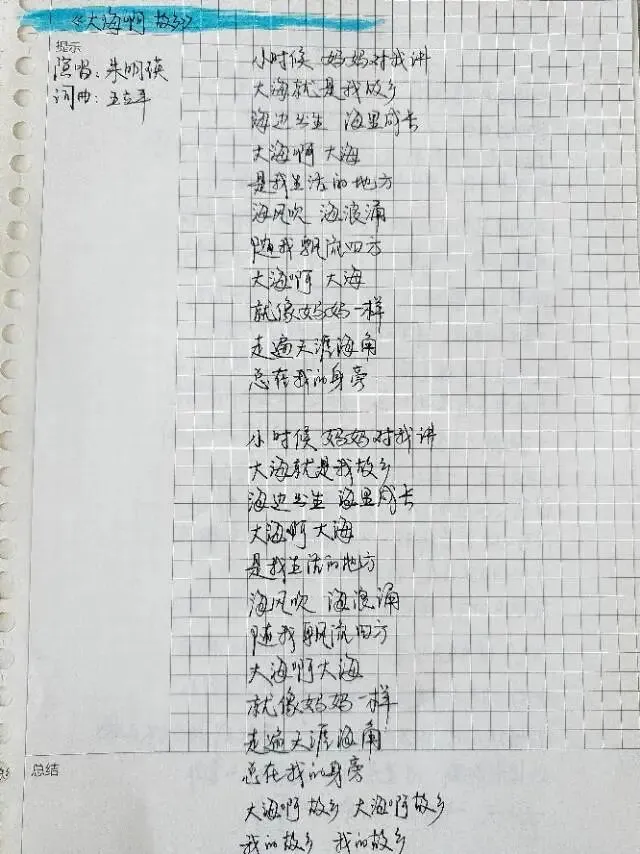 《大海啊 故乡》
提示
演唱：朱明瑛
词曲：王立平
小时候 妈妈对我讲
大海就是我故乡
海边出生 海里成长
大海啊 大海
是我生活的地方
海风吹 海浪涌
随我飘流四方
大海啊 大海
就像妈妈一样
走遍天涯海角
总在我的身旁
小时候 妈妈对我讲
大海就是我故乡
海边出生 海里成长
大海啊 大海
是我生活的地方
海风吹 海浪涌
随我飘流四方
大海啊 大海
就像妈妈一样
走遍天涯海角
总结
总在我的身旁
大海啊 故乡 大海啊 故乡
我的故乡 我的故乡